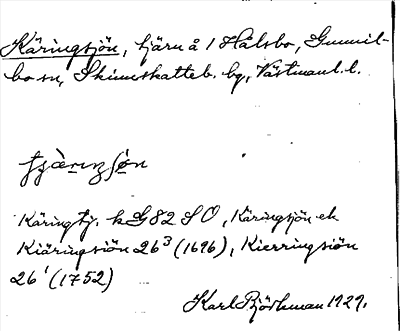 Käringsjön, tjärn å 1 Halsbo, Gunnil-
bo sn, Skinnskatteb. bg, Västmanl. l.
Käringtj. k G 82 S O, Käringsjön ek
Kiäringsiön 26³ (1696), Kierringsiön
26¹ (1752)
Karl Björkman 1929.